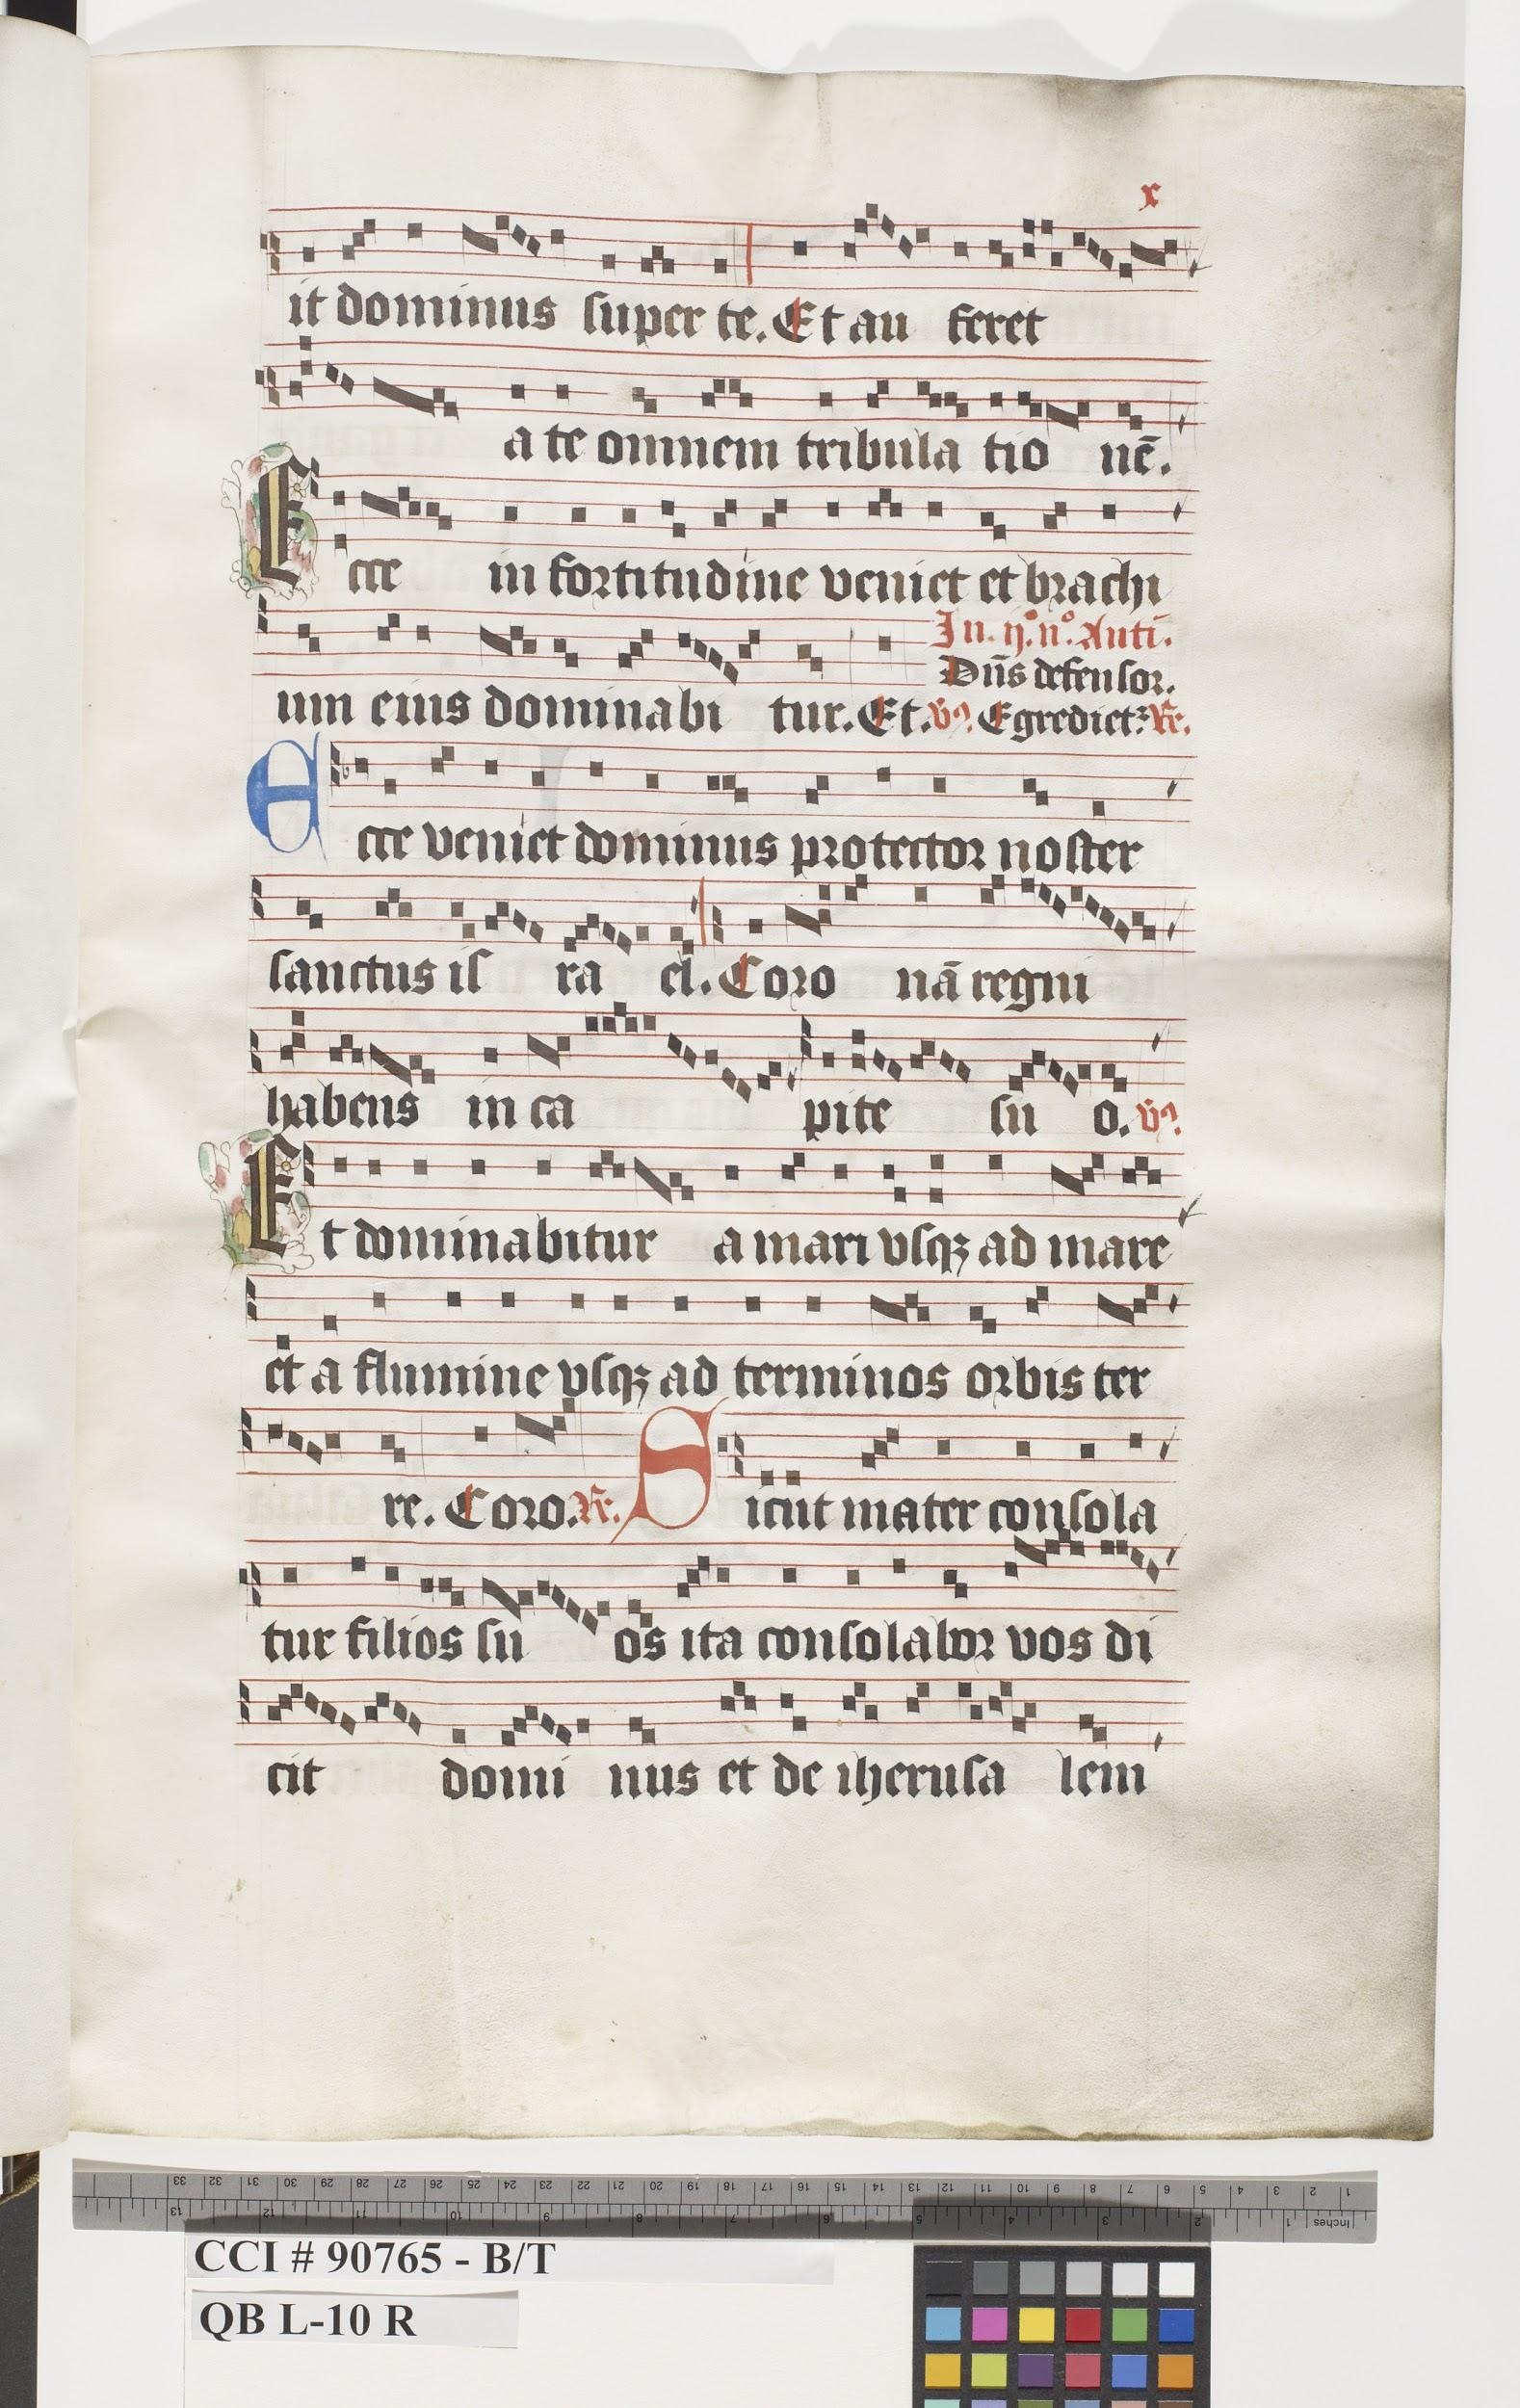 x
it dominus super te. Et au feret
a te omnem tribula tio nē.
Ecce in fortitudine veniet et brachi
In. ij.º nº. Anti.
Dn̄s defensor.
um eius dominabi tur. Et. V̄. Egrediet᷑ R̄.
Ecce veniet dominus protector noster
sanctus is ra el. Coro nā regni
habens in ca pite su o. V̄.
Et dominabitur a mari vsqꝫ ad mare
et a flumine vsqꝫ ad terminos orbis ter
re. Coro. R̄. Sicut mater consola
tur filios su os ita consolabor vos di
cit domi nus et de iherusa lem
33 32 31 30 29 28 27 26 25 24 23 22 21 20 19 18 17 16 15 14 13 12 11 10 9 8 7 6 5 4 3 2 1
13 12 11 10 9 8 7 6 5 4 3 2 1 Inches
CCI # 90765 - B/T
QB L-10 R